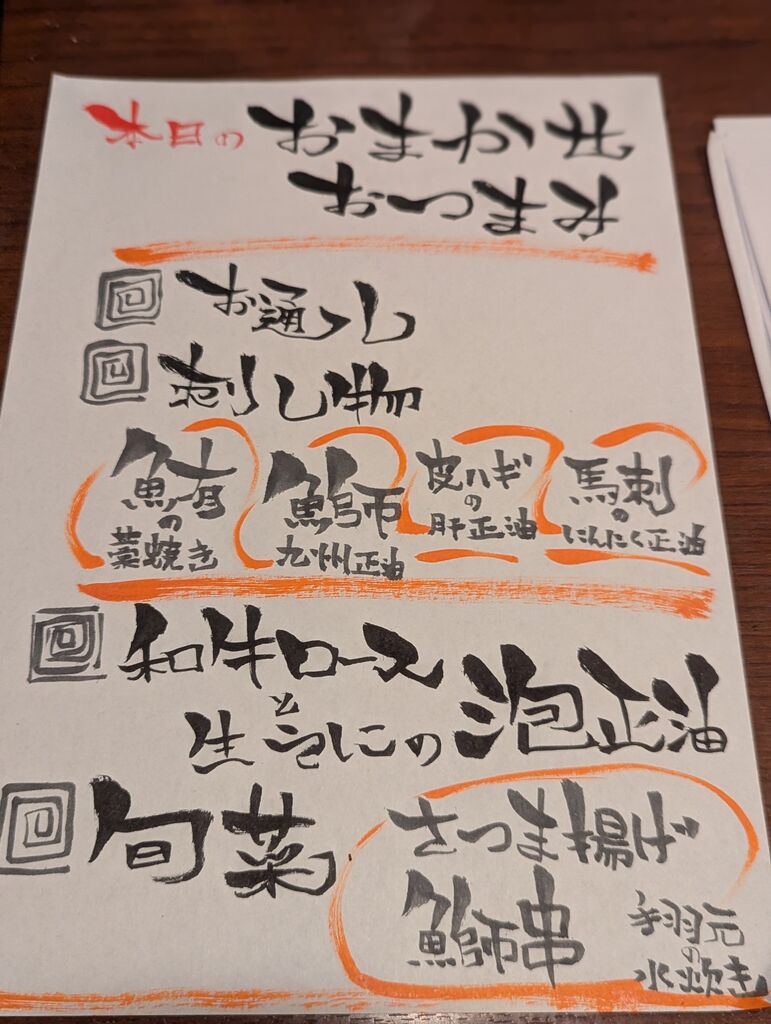 本日の おまかせ
おつまみ
お通し
刺し物
鮪の藁焼き
鰤 九州正油
皮ハギの肝正油
馬刺のにんにく正油
和牛ロースと
生うにの泡正油
旬菜
さつま揚げ
鰤串
手羽元の水炊き